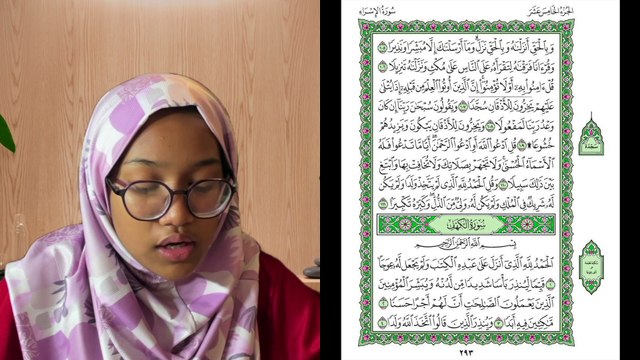 الجزء الخامس عشر
سورة الإسراء
وَبِالْحَقِّ أَنزَلْنَٰهُ وَبِالْحَقِّ نَزَلَ وَمَا أَرْسَلْنَٰكَ إِلَّا مُبَشِّرًا وَنَذِيرًا ١٠٥
وَقُرْءَانًا فَرَقْنَٰهُ لِتَقْرَأَهُ عَلَى النَّاسِ عَلَىٰ مُكْثٍ وَنَزَّلْنَٰهُ تَنزِيلًا ١٠٦
قُلْ ءَامِنُوا بِهِ أَوْ لَا تُؤْمِنُوا إِنَّ الَّذِينَ أُوتُوا الْعِلْمَ مِن قَبْلِهِ إِذَا يُتْلَىٰ
عَلَيْهِمْ يَخِرُّونَ لِلْأَذْقَانِ سُجَّدًا ١٠٧ وَيَقُولُونَ سُبْحَٰنَ رَبِّنَا إِن كَانَ
وَعْدُ رَبِّنَا لَمَفْعُولًا ١٠٨ وَيَخِرُّونَ لِلْأَذْقَانِ يَبْكُونَ وَيَزِيدُهُمْ
خُشُوعًا ۩ ١٠٩ قُلِ ادْعُوا اللَّهَ أَوِ ادْعُوا الرَّحْمَٰنَ أَيًّا مَّا تَدْعُوا فَلَهُ
الْأَسْمَاءُ الْحُسْنَىٰ وَلَا تَجْهَرْ بِصَلَاتِكَ وَلَا تُخَافِتْ بِهَا وَابْتَغِ
بَيْنَ ذَٰلِكَ سَبِيلًا ١١٠ وَقُلِ الْحَمْدُ لِلَّهِ الَّذِي لَمْ يَتَّخِذْ وَلَدًا وَلَمْ يَكُن
لَّهُ شَرِيكٌ فِي الْمُلْكِ وَلَمْ يَكُن لَّهُ وَلِيٌّ مِّنَ الذُّلِّ وَكَبِّرْهُ تَكْبِيرًا ١١١
سُورَةُ الْكَهْفِ
بِسْمِ اللَّهِ الرَّحْمَٰنِ الرَّحِيمِ
الْحَمْدُ لِلَّهِ الَّذِي أَنزَلَ عَلَىٰ عَبْدِهِ الْكِتَٰبَ وَلَمْ يَجْعَل لَّهُ عِوَجًا ١
قَيِّمًا لِّيُنذِرَ بَأْسًا شَدِيدًا مِّن لَّدُنْهُ وَيُبَشِّرَ الْمُؤْمِنِينَ
الَّذِينَ يَعْمَلُونَ الصَّٰلِحَٰتِ أَنَّ لَهُمْ أَجْرًا حَسَنًا ٢
مَّٰكِثِينَ فِيهِ أَبَدًا ٣ وَيُنذِرَ الَّذِينَ قَالُوا اتَّخَذَ اللَّهُ وَلَدًا ٤
٢٩٣